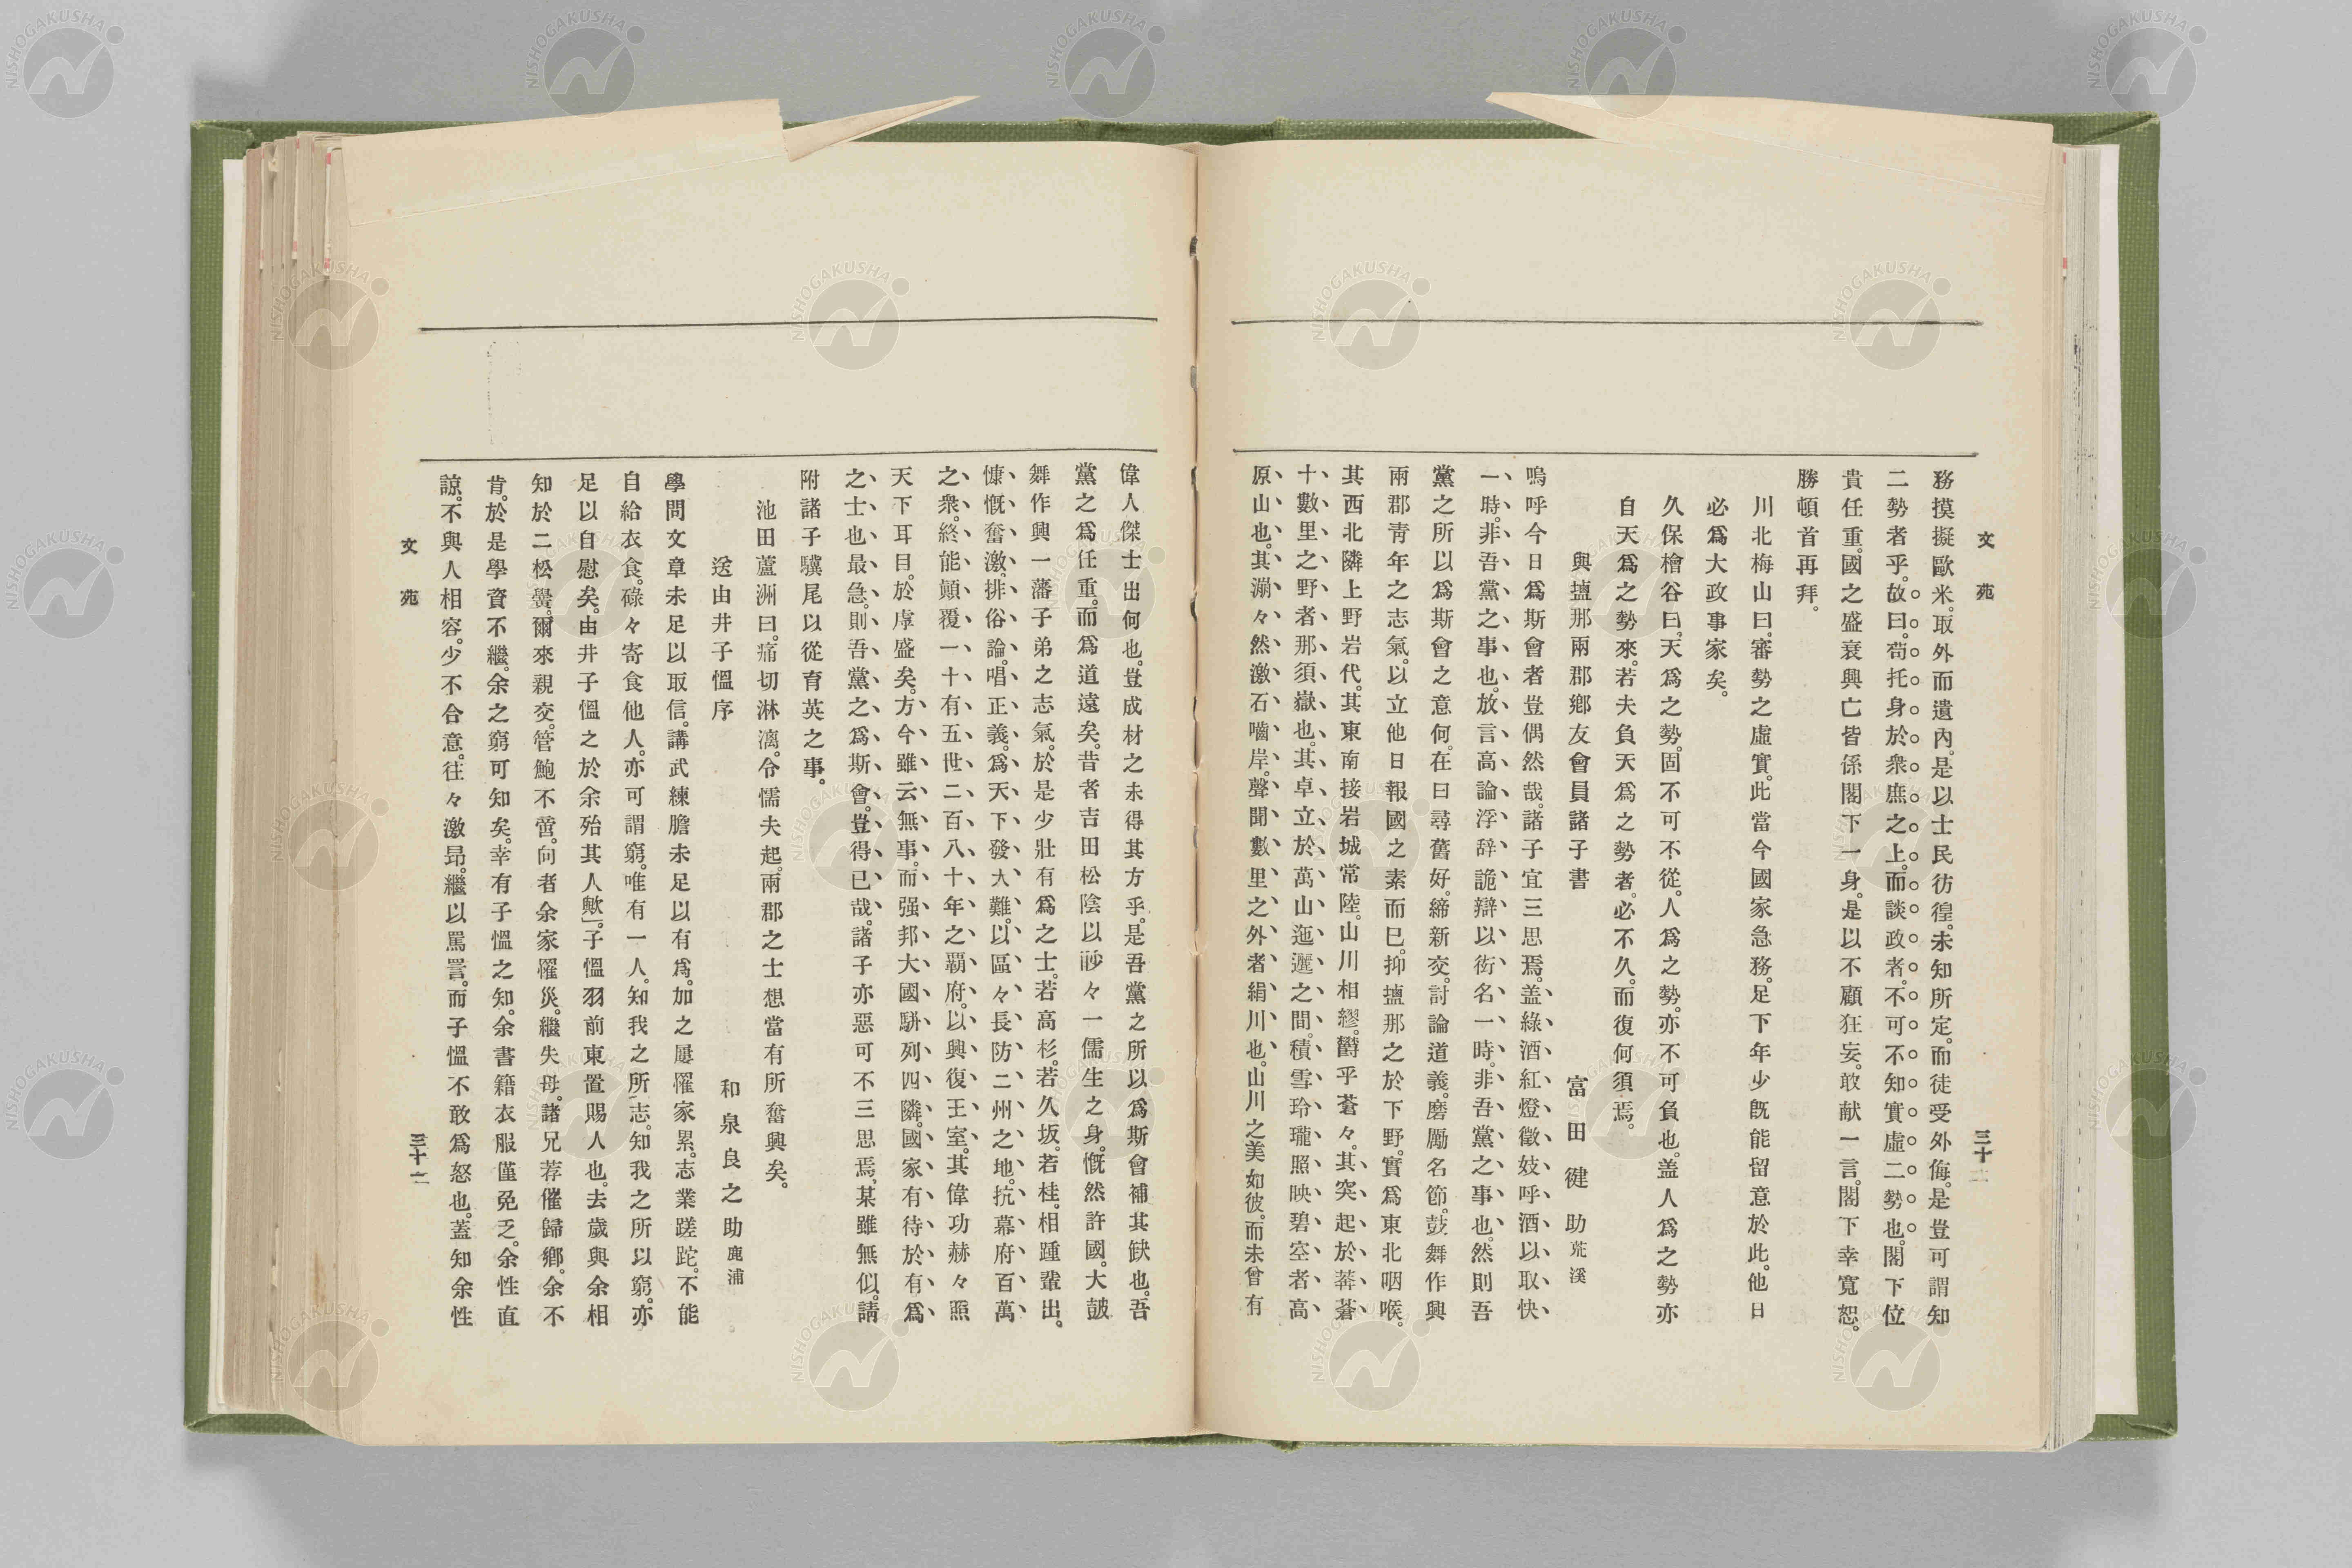 文苑
三十一
務摸擬歐米。取外而遺內。是以士民彷徨。未知所定。而徒受外侮。是豈可謂知
二勢者乎。故曰。苟托身於衆庶之上。而談政者。不可不知實虛二勢也。閣下位
貴任重。國之盛衰興亡皆係閣下一身。是以不顧狂妄。敢献一言。閣下幸寬恕。
勝頓首再拜。
川北梅山曰。審勢之虛實。此當今國家急務。足下年少旣能留意於此。他日
必爲大政事家矣。
久保檜谷曰。天爲之勢。固不可不從。人爲之勢。亦不可負也。盖人爲之勢亦
自天爲之勢來。若夫負天爲之勢者。必不久。而復何須焉。
與塩那兩郡鄕友會員諸子書
富田健助 荒溪
嗚呼今日爲斯會者豈偶然哉。諸子宜三思焉。盖綠酒紅燈徵妓呼酒以取快
一時。非吾黨之事也。放言高論浮辞詭辯以衒名一時。非吾黨之事也。然則吾
黨之所以爲斯會之意何。在曰尋舊好。締新交。討論道義。磨厲名節。鼓舞作興
兩郡靑年之志氣。以立他日報國之素而已。抑塩那之於下野。實爲東北咽喉。
其西北隣上野岩代。其東南接岩城常陸。山川相繆。欝乎蒼々。其突起於莾蒼
十數里之野者那須嶽也。其卓立於萬山迤邐之間。積雪玲瓏照映碧空者高
原山也。其漰々然激石嚙岸。聲聞數里之外者絹川也。山川之美如彼。而未曾有
偉人傑士出何也。豈成材之未得其方乎。是吾黨之所以爲斯會補其缺也。吾
黨之爲任重。而爲道遠矣。昔者吉田松陰以眇々一儒生之身。慨然許國。大皷
舞作興一藩子弟之志氣。於是少壯有爲之士。若高杉。若久坂。若桂。相踵輩出。
慷慨奮激。排俗論。唱正義。爲天下發大難。以區々長防二州之地。抗幕府百萬
之衆。終能顚覆一十有五世二百八十年之覇府。以興復王室。其偉功赫々照
天下耳目。於虖盛矣。方今雖云無事。而强邦大國駢列四隣。國家有待於有爲
之士也最急。則吾黨之爲斯會。豈得已哉。諸子亦惡可不三思焉。某雖無似。請
附諸子驥尾以從育英之事。
池田蘆洲曰。痛切淋漓。令懦夫起。兩郡之士想當有所奮興矣。
送由井子慍序
和泉良之助 鹿浦
學問文章未足以取信。講武練膽未足以有爲。加之屢罹家累。志業蹉跎。不能
自給衣食。碌々寄食他人。亦可謂窮。唯有一人。知我之所志。知我之所以窮。亦
足以自慰矣。由井子慍之於余殆其人歟。子慍羽前東置賜人也。去歲與余相
知於二松黌。爾來親交。管鮑不啻。向者余家罹災。繼失母。諸兄荐催歸鄕。余不
肯。於是學資不繼。余之窮可知矣。幸有子慍之知。余書籍衣服僅免乏。余性直
諒。不與人相容。少不合意。往々激昂。繼以罵詈。而子慍不敢爲怒也。蓋知余性
文苑
三十二